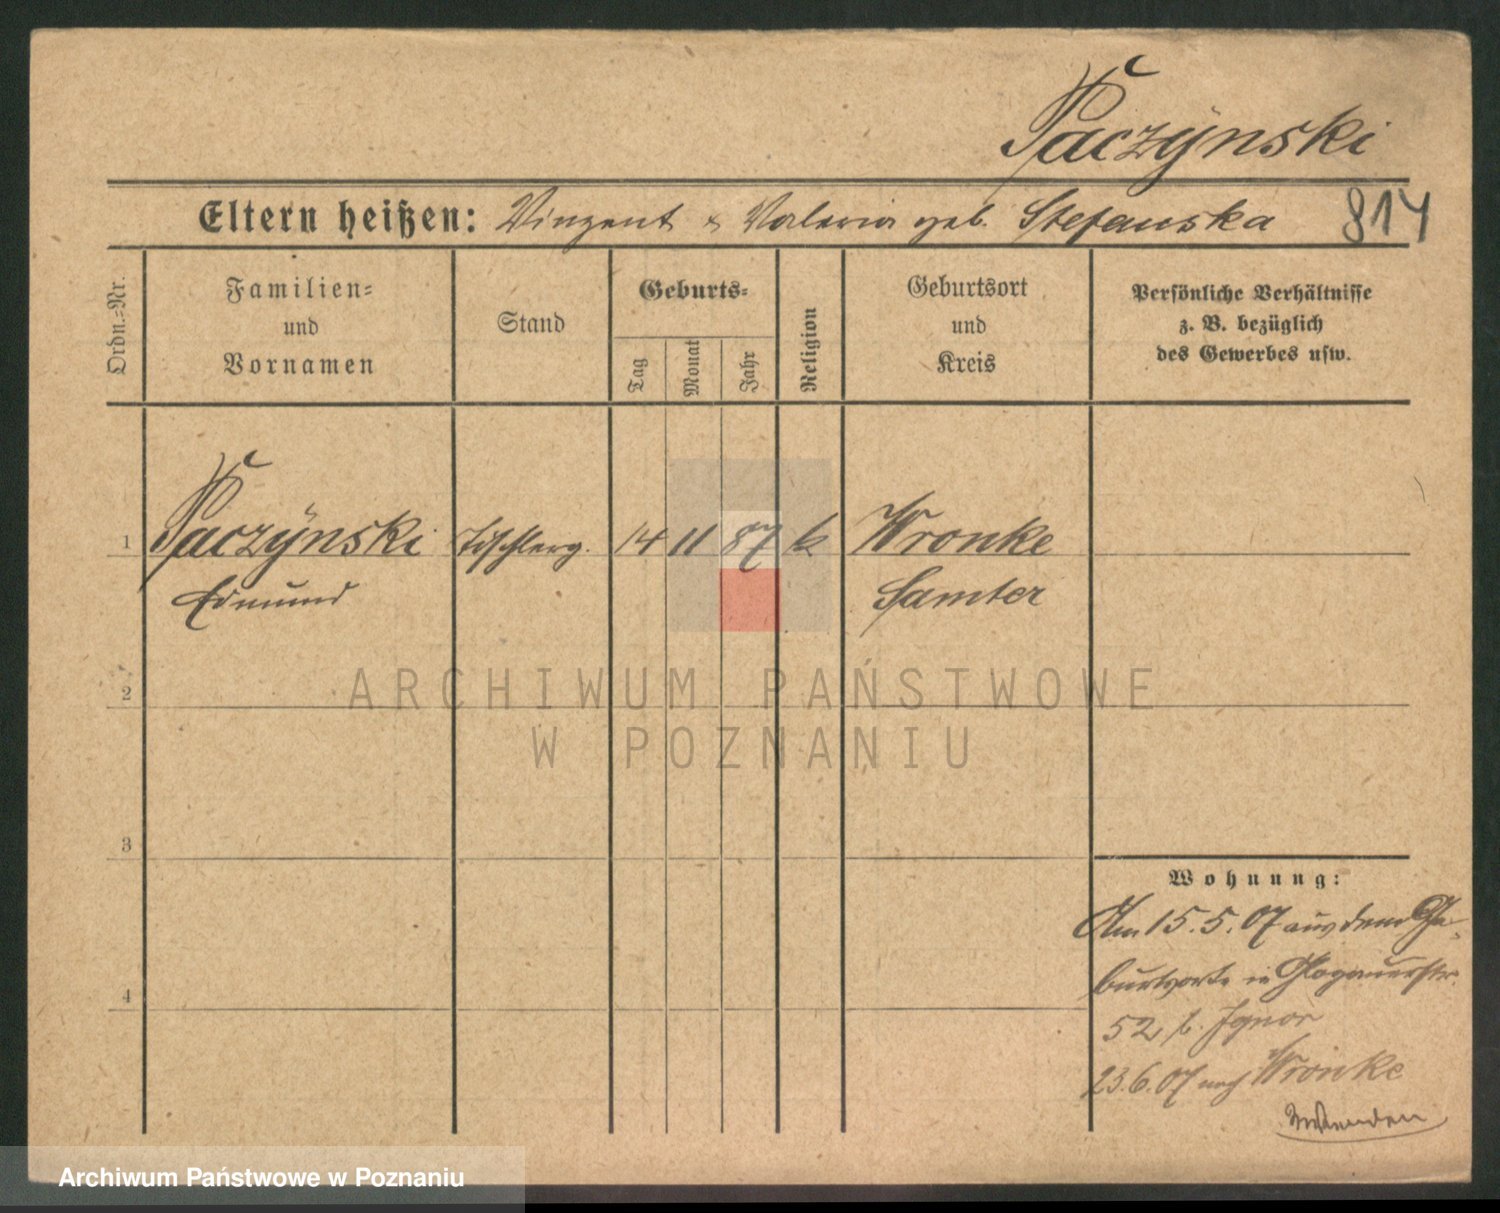 Paczÿnski
Eltern heißen: Vinzent & Valeria geb. Stefanska 814
Ordn.=Nr.
Familien=
und
Vornamen
Stand
Geburts=
Tag
Monat
Jahr
Religion
Geburtsort
und
Kreis
Persönliche Verhältnisse
z. B. bezüglich
des Gewerbes usw.
1 Paczÿnski Tischlerg. 14 11 87 k Wronke
Edmund Samter
2
ARCHIWUM PAŃSTWOWE
W POZNANIU
3
4
Wohnung:
Am 15.5.07 aus dem Ge-
burtsorte in Glogauerstr.
52, b.
23.6.07 nach Wronke
Archiwum Państwowe w Poznaniu